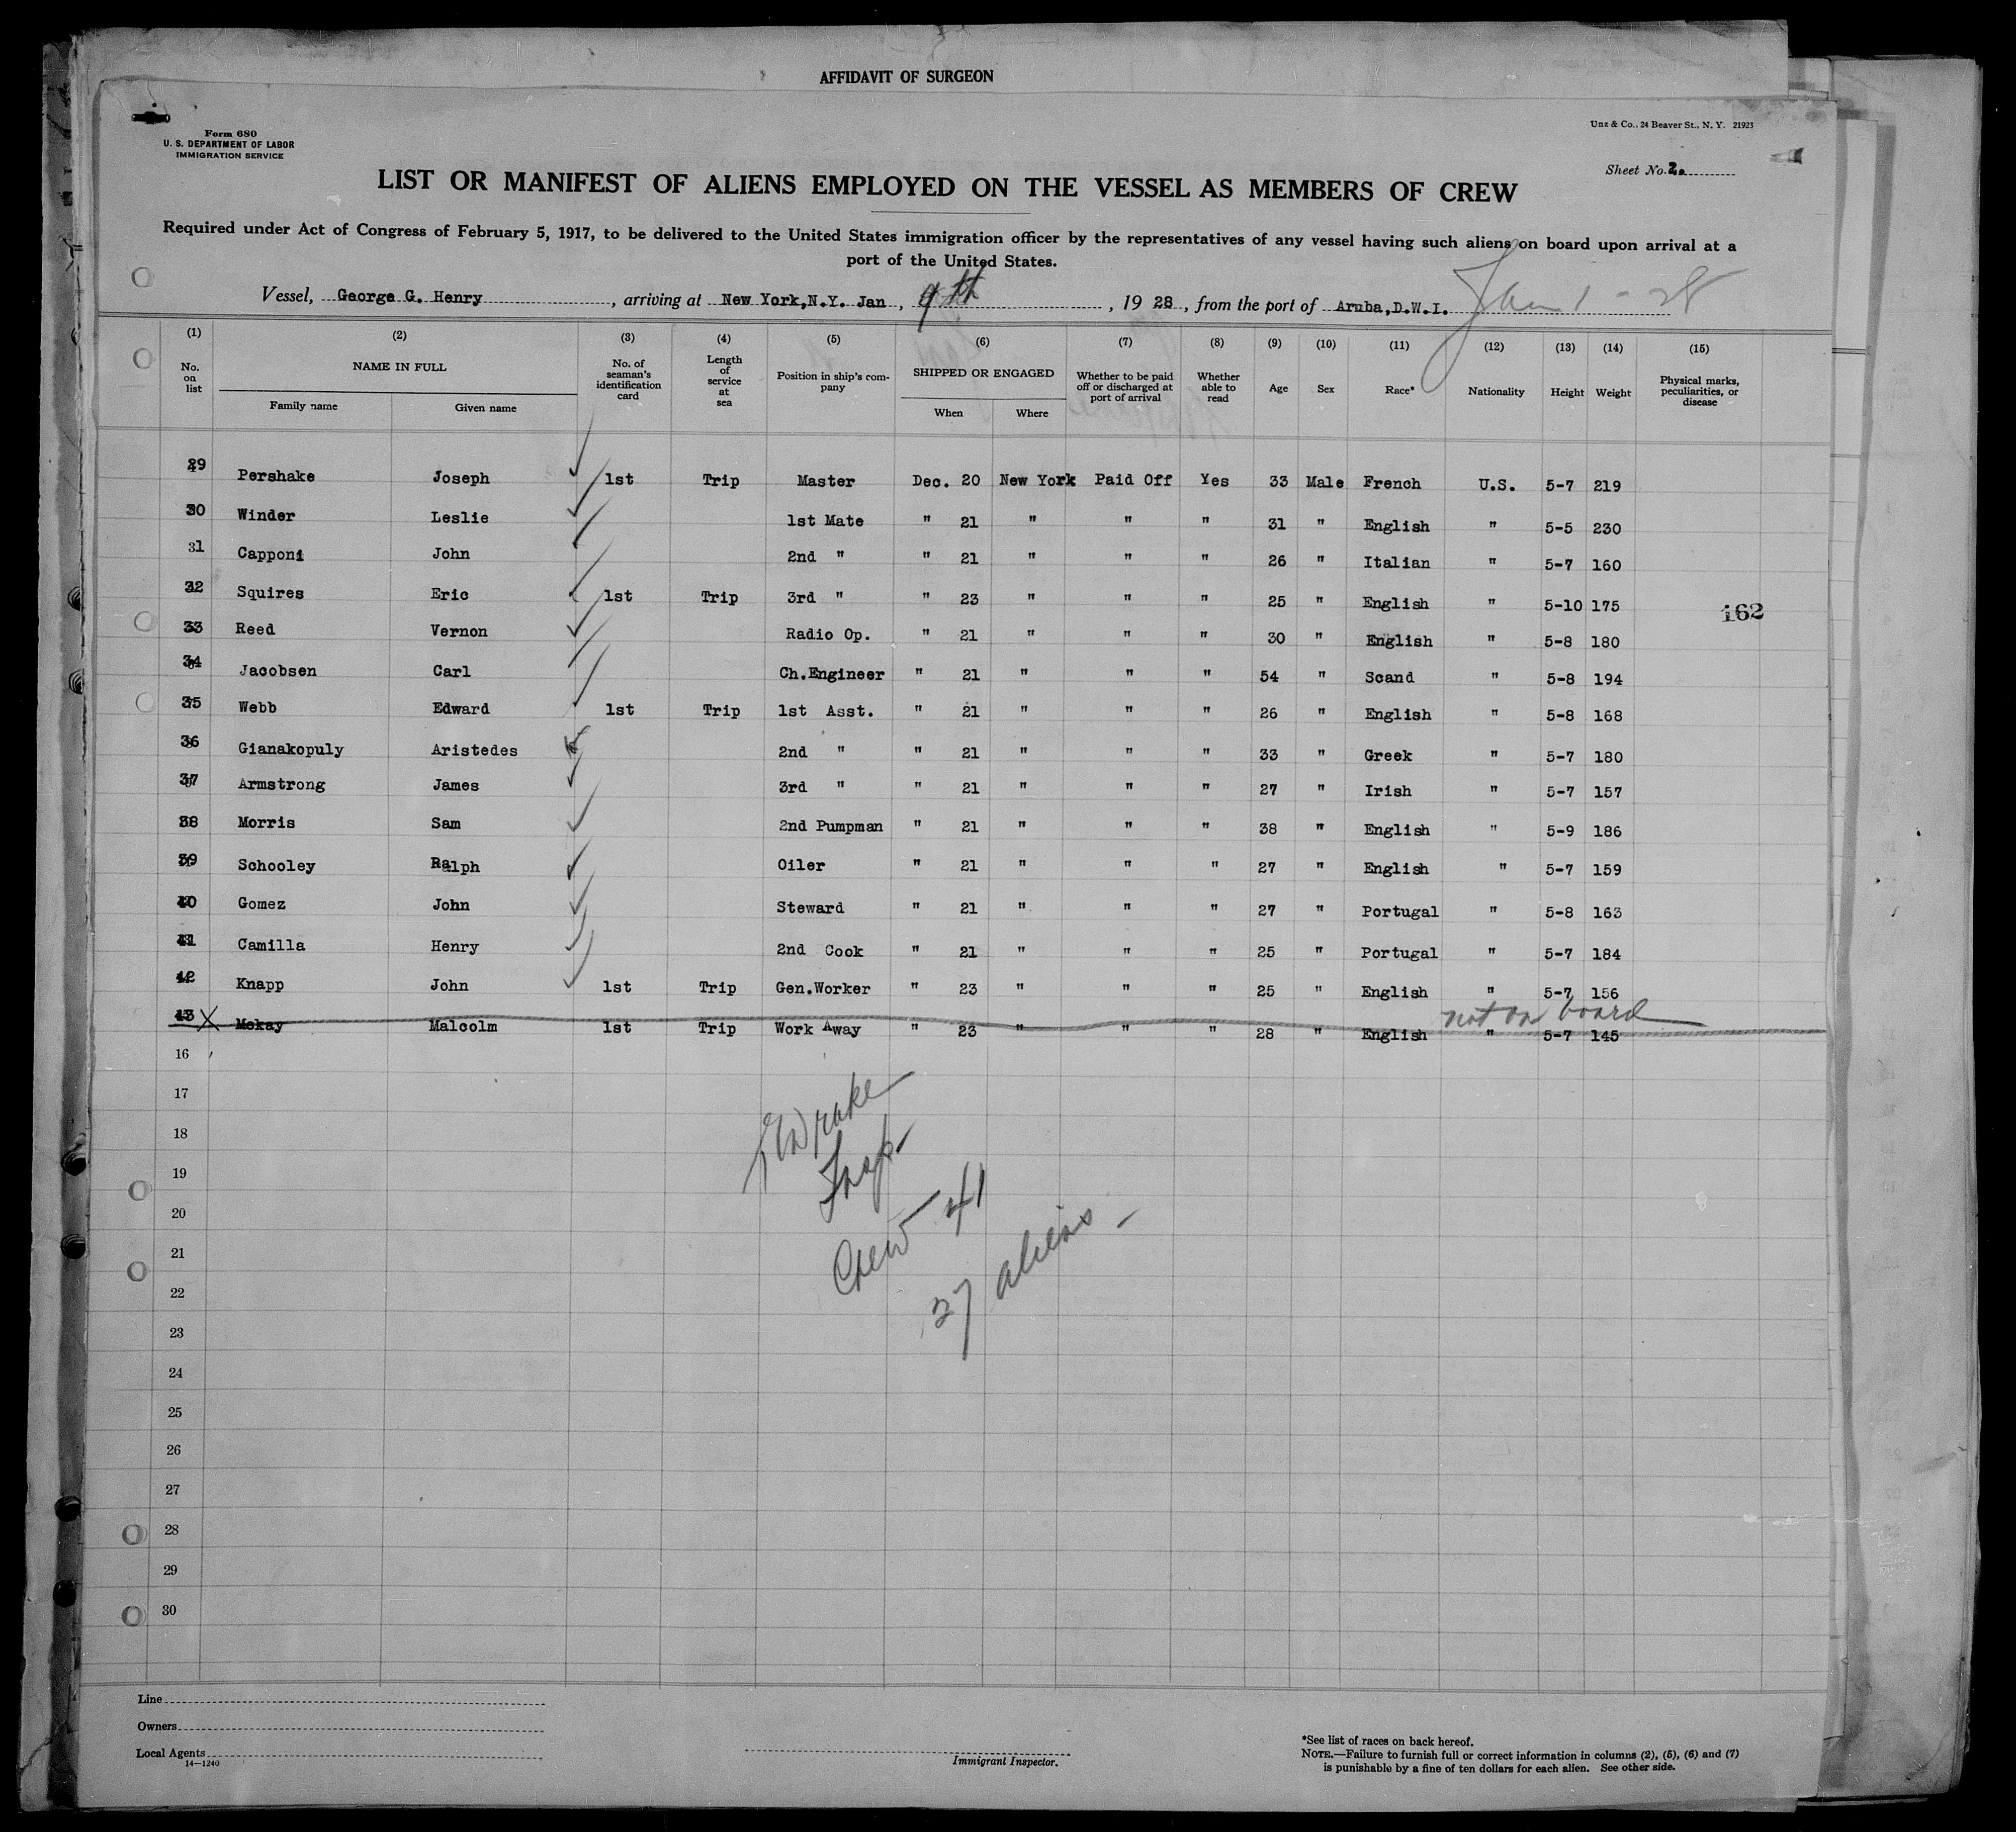 AFFIDAVIT OF SURGEON
Form 680
U. S. DEPARTMENT OF LABOR
IMMIGRATION SERVICE
Unz & Co., 24 Beaver St., N. Y. 21923
Sheet No. 2.
LIST OR MANIFEST OF ALIENS EMPLOYED ON THE VESSEL AS MEMBERS OF CREW
Required under Act of Congress of February 5, 1917, to be delivered to the United States immigration officer by the representatives of any vessel having such aliens on board upon arrival at a
port of the United States.
Vessel, George G. Henry, arriving at New York, N.Y. Jan, 9th, 19 28, from the port of Aruba, D.W.I. Jan 1 - 28
(1) (2) (3) (4) (5) (6) (7) (8) (9) (10) (11) (12) (13) (14) (15)
No. on list NAME IN FULL Family name Given name No. of seaman's identification card Length of service at sea Position in ship's company SHIPPED OR ENGAGED When Where Whether to be paid off or discharged at port of arrival Whether able to read Age Sex Race* Nationality Height Weight Physical marks, peculiarities, or disease
29 Pershake Joseph 1st Trip Master Dec. 20 New York Paid Off Yes 33 Male French U.S. 5-7 219
30 Winder Leslie 1st Mate " 21 " " " 31 " English " 5-5 230
31 Capponi John 2nd " " 21 " " " 26 " Italian " 5-7 160
32 Squires Eric 1st Trip 3rd " " 23 " " " 25 " English " 5-10 175
162
33 Reed Vernon Radio Op. " 21 " " " 30 " English " 5-8 180
34 Jacobsen Carl Ch.Engineer " 21 " " " 54 " Scand " 5-8 194
35 Webb Edward 1st Trip 1st Asst. " 21 " " " 26 " English " 5-8 168
36 Gianakopuly Aristedes 2nd " " 21 " " " 33 " Greek " 5-7 180
37 Armstrong James 3rd " " 21 " " " 27 " Irish " 5-7 157
38 Morris Sam 2nd Pumpman " 21 " " " 38 " English " 5-9 186
39 Schooley Ralph Oiler " 21 " " " 27 " English " 5-7 159
40 Gomez John Steward " 21 " " " 27 " Portugal " 5-8 163
41 Camilla Henry 2nd Cook " 21 " " " 25 " Portugal " 5-7 184
42 Knapp John 1st Trip Gen.Worker " 23 " " " 25 " English " 5-7 156
not on board
43 X Mckay Malcolm 1st Trip Work Away " 23 " " " 28 " English " 5-7 145
16
17
18
19
20
21
22
23
24
25
26
27
28
29
30
Drake
Insp
Crew 41
37 aliens -
Line
Owners
Local Agents
14—1240
Immigrant Inspector.
*See list of races on back hereof.
NOTE.—Failure to furnish full or correct information in columns (2), (5), (6) and (7)
is punishable by a fine of ten dollars for each alien. See other side.